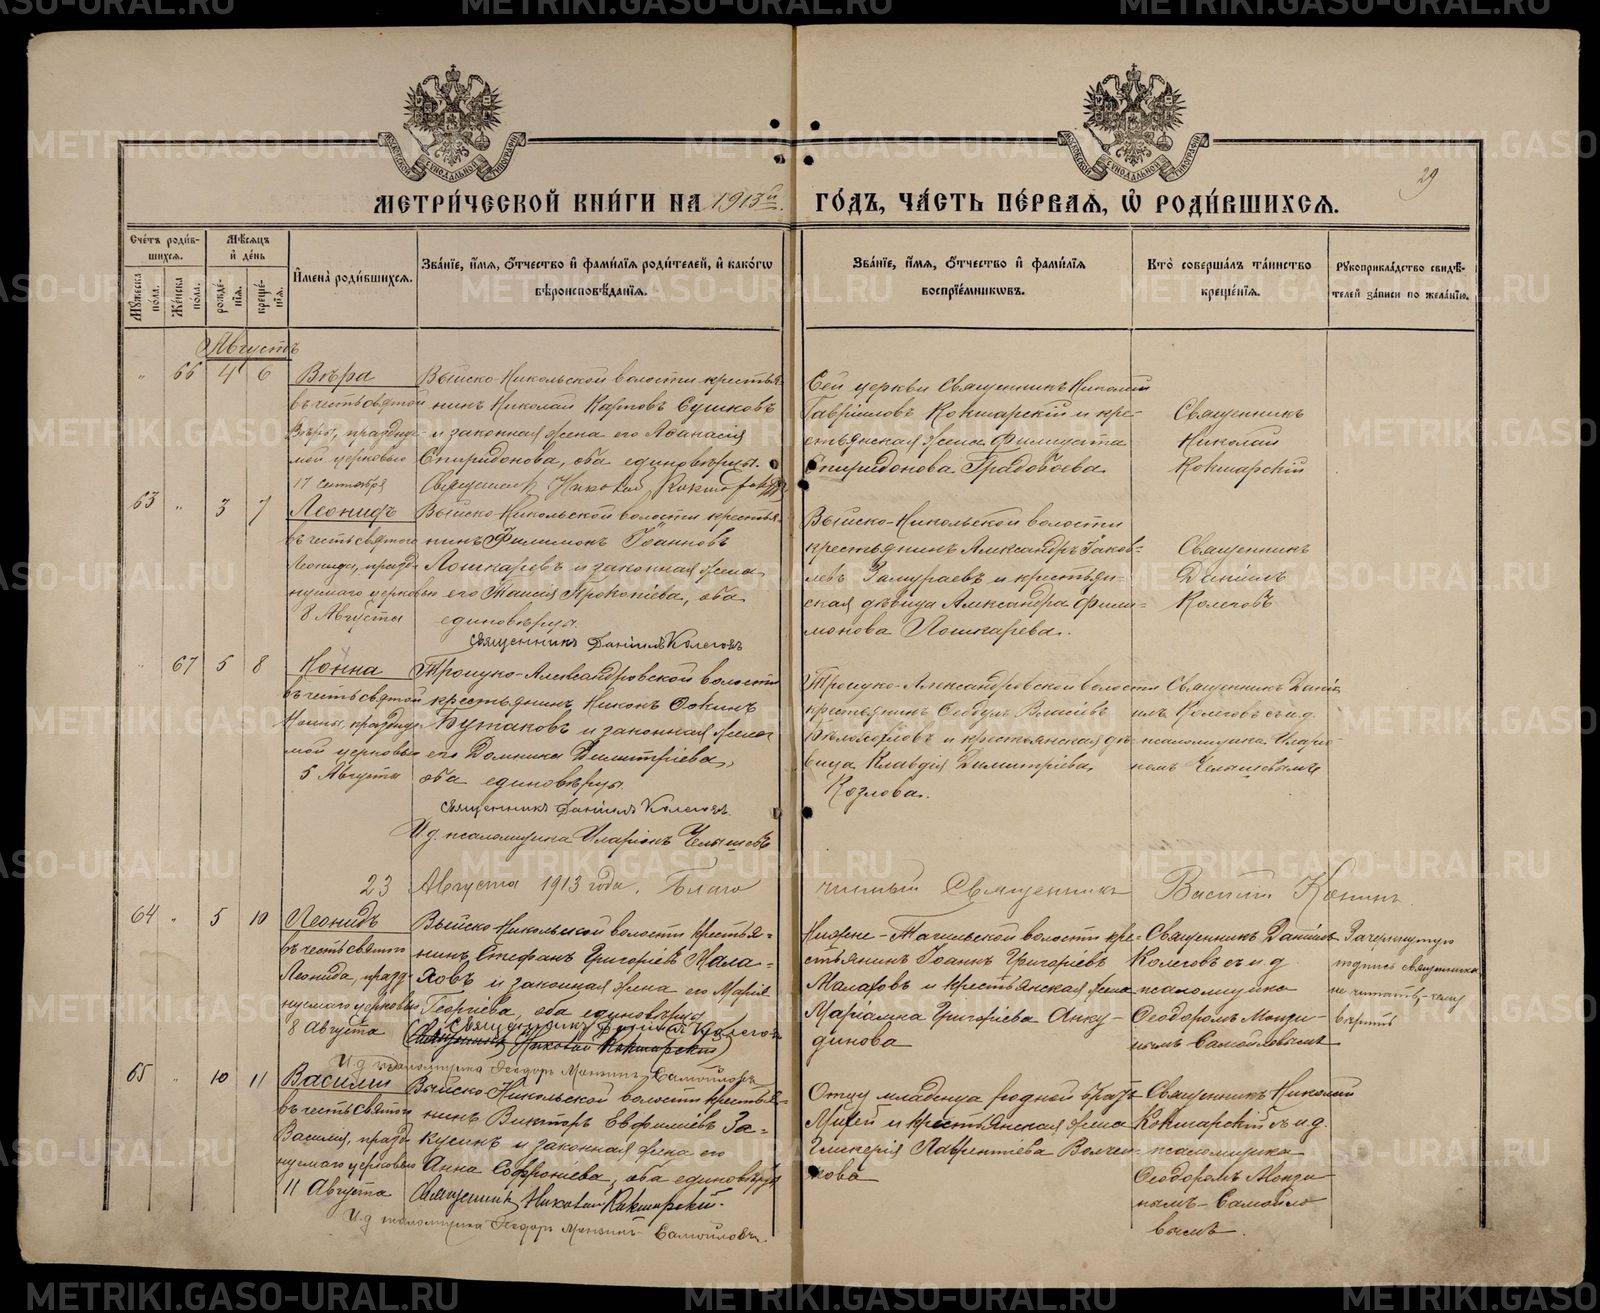 МЕТРИ́ЧЕСКОЙ КНИ́ГИ НА 1913й
ГО́ДЪ, ЧА́СТЬ ПЕ́РВАЯ, Ѡ҆ РОДИ́ВШИХСЯ.
29
Сче́тъ роди́вшихся.
Мѣ́сяцъ и҆ де́нь
Мꙋ́жеска по́ла.
Же́нска по́ла.
рожде́нїя.
креще́нїя.
И҆мена̀ роди́вшихся.
Зва́нїе, и҆́мя, ѻ҆́тчество и҆ фами́лїя роди́телей, и҆ како́гѡ
вѣроисповѣ́данїя.
Зва́нїе, и҆́мя, ѻ҆́тчество и҆ фами́лїя
воспрїе́мникѡвъ.
Кто̀ соверша́лъ та́инство
креще́нїя.
Рꙋкоприкла́дство свидѣ́-
телей за́писи по жела́нїю.
Августъ
„ 66 4 6
Вѣра
въ честь святой
Вѣры, празднуе-
мой церковью
17 сентября
Выйско-Никольской волости крестья-
нинъ Николай Карповъ Сушковъ
и законная жена его Аѳанасія
Спиридонова, оба единовѣрцы.
Священникъ Николай Кокшарскій
Сей церкви Священникъ Николай
Гавріиловъ Кокшарскій и кре-
стьянская жена Филицата
Спиридонова Градобоева.
Священникъ
Николай
Кокшарскій
63 „ 3 7
Леонидъ
въ честь святого
Леонида, празд-
нуемаго церковью
8 Августа
Выйско-Никольской волости крестья-
нинъ Филимонъ Іоанновъ
Лошкаревъ и законная жена
его Таисія Прокопіева, оба
единовѣрцы.
Священникъ Даніилъ Колеговъ
Выйско-Никольской волости
крестьянинъ Александръ Іаков-
левъ Замураевъ и крестьян-
ская дѣвица Александра Фили-
монова Лошкарева.
Священникъ
Даніилъ
Колеговъ
„ 67 5 8
Нонна
въ честь святой
Нонны, празднуе-
мой церковью
5 Августа
Троицко-Александровской волости
крестьянинъ Никонъ Ѳокинъ
Бутаковъ и законная жена
его Домника Димитріева,
оба единовѣрцы.
Священникъ Даніилъ Колеговъ.
И.д. псаломщика Иларіонъ Челышевъ
Троицко-Александровской волости
крестьянинъ Ѳеодулъ Власіевъ
и крестьянская дѣ-
вица Клавдія Димитріева
Козлова.
Священникъ Дані-
илъ Колеговъ съ и.д.
псаломщика Иларіо-
номъ Челышевымъ
23 Августа 1913 года. Благо
чинный Священникъ Василій
64 „ 5 10
Леонидъ
въ честь святого
Леонида, празд-
нуемаго церковью
8 Августа
Выйско-Никольской волости крестья-
нинъ Стефанъ Григоріевъ Мала-
ховъ и законная жена его Марія
Георгіева, оба единовѣрцы
Священникъ Даніилъ Колеговъ
Священникъ Николай Кокшарскій
И.д. псаломщика Ѳеодоръ Монзинъ-Самойловъ
Нижне-Тагильской волости кре-
стьянинъ Іоаннъ Григоріевъ
Малаховъ и крестьянская жена
Маріамна Григоріева Анку-
динова
Священникъ Даніилъ
Колеговъ съ и.д.
псаломщика
Ѳеодоромъ Монзи-
нымъ-Самойловымъ
Зачеркнутую
подпись священника
не читать, чему
вѣрить
65 „ 10 11
Василій
въ честь святого
Василія, празд-
нуемаго церковью
11 Августа
Выйско-Никольской волости крестья-
нинъ Викторъ Евфиміевъ За-
кусинъ и законная жена его
Анна Софроніева, оба единовѣрцы
Священникъ Николай Кокшарскій.
И.д. псаломщика Ѳеодоръ Монзинъ-Самойловъ.
Отцу младенца родной братъ
и крестьянская жена
Гликерія Лаврентіева Волчен-
кова
Священникъ Николай
Кокшарскій съ и.д.
псаломщика
Ѳеодоромъ Монзи-
нымъ-Самойло
вымъ.
METRIKI.GASO-URAL.RU